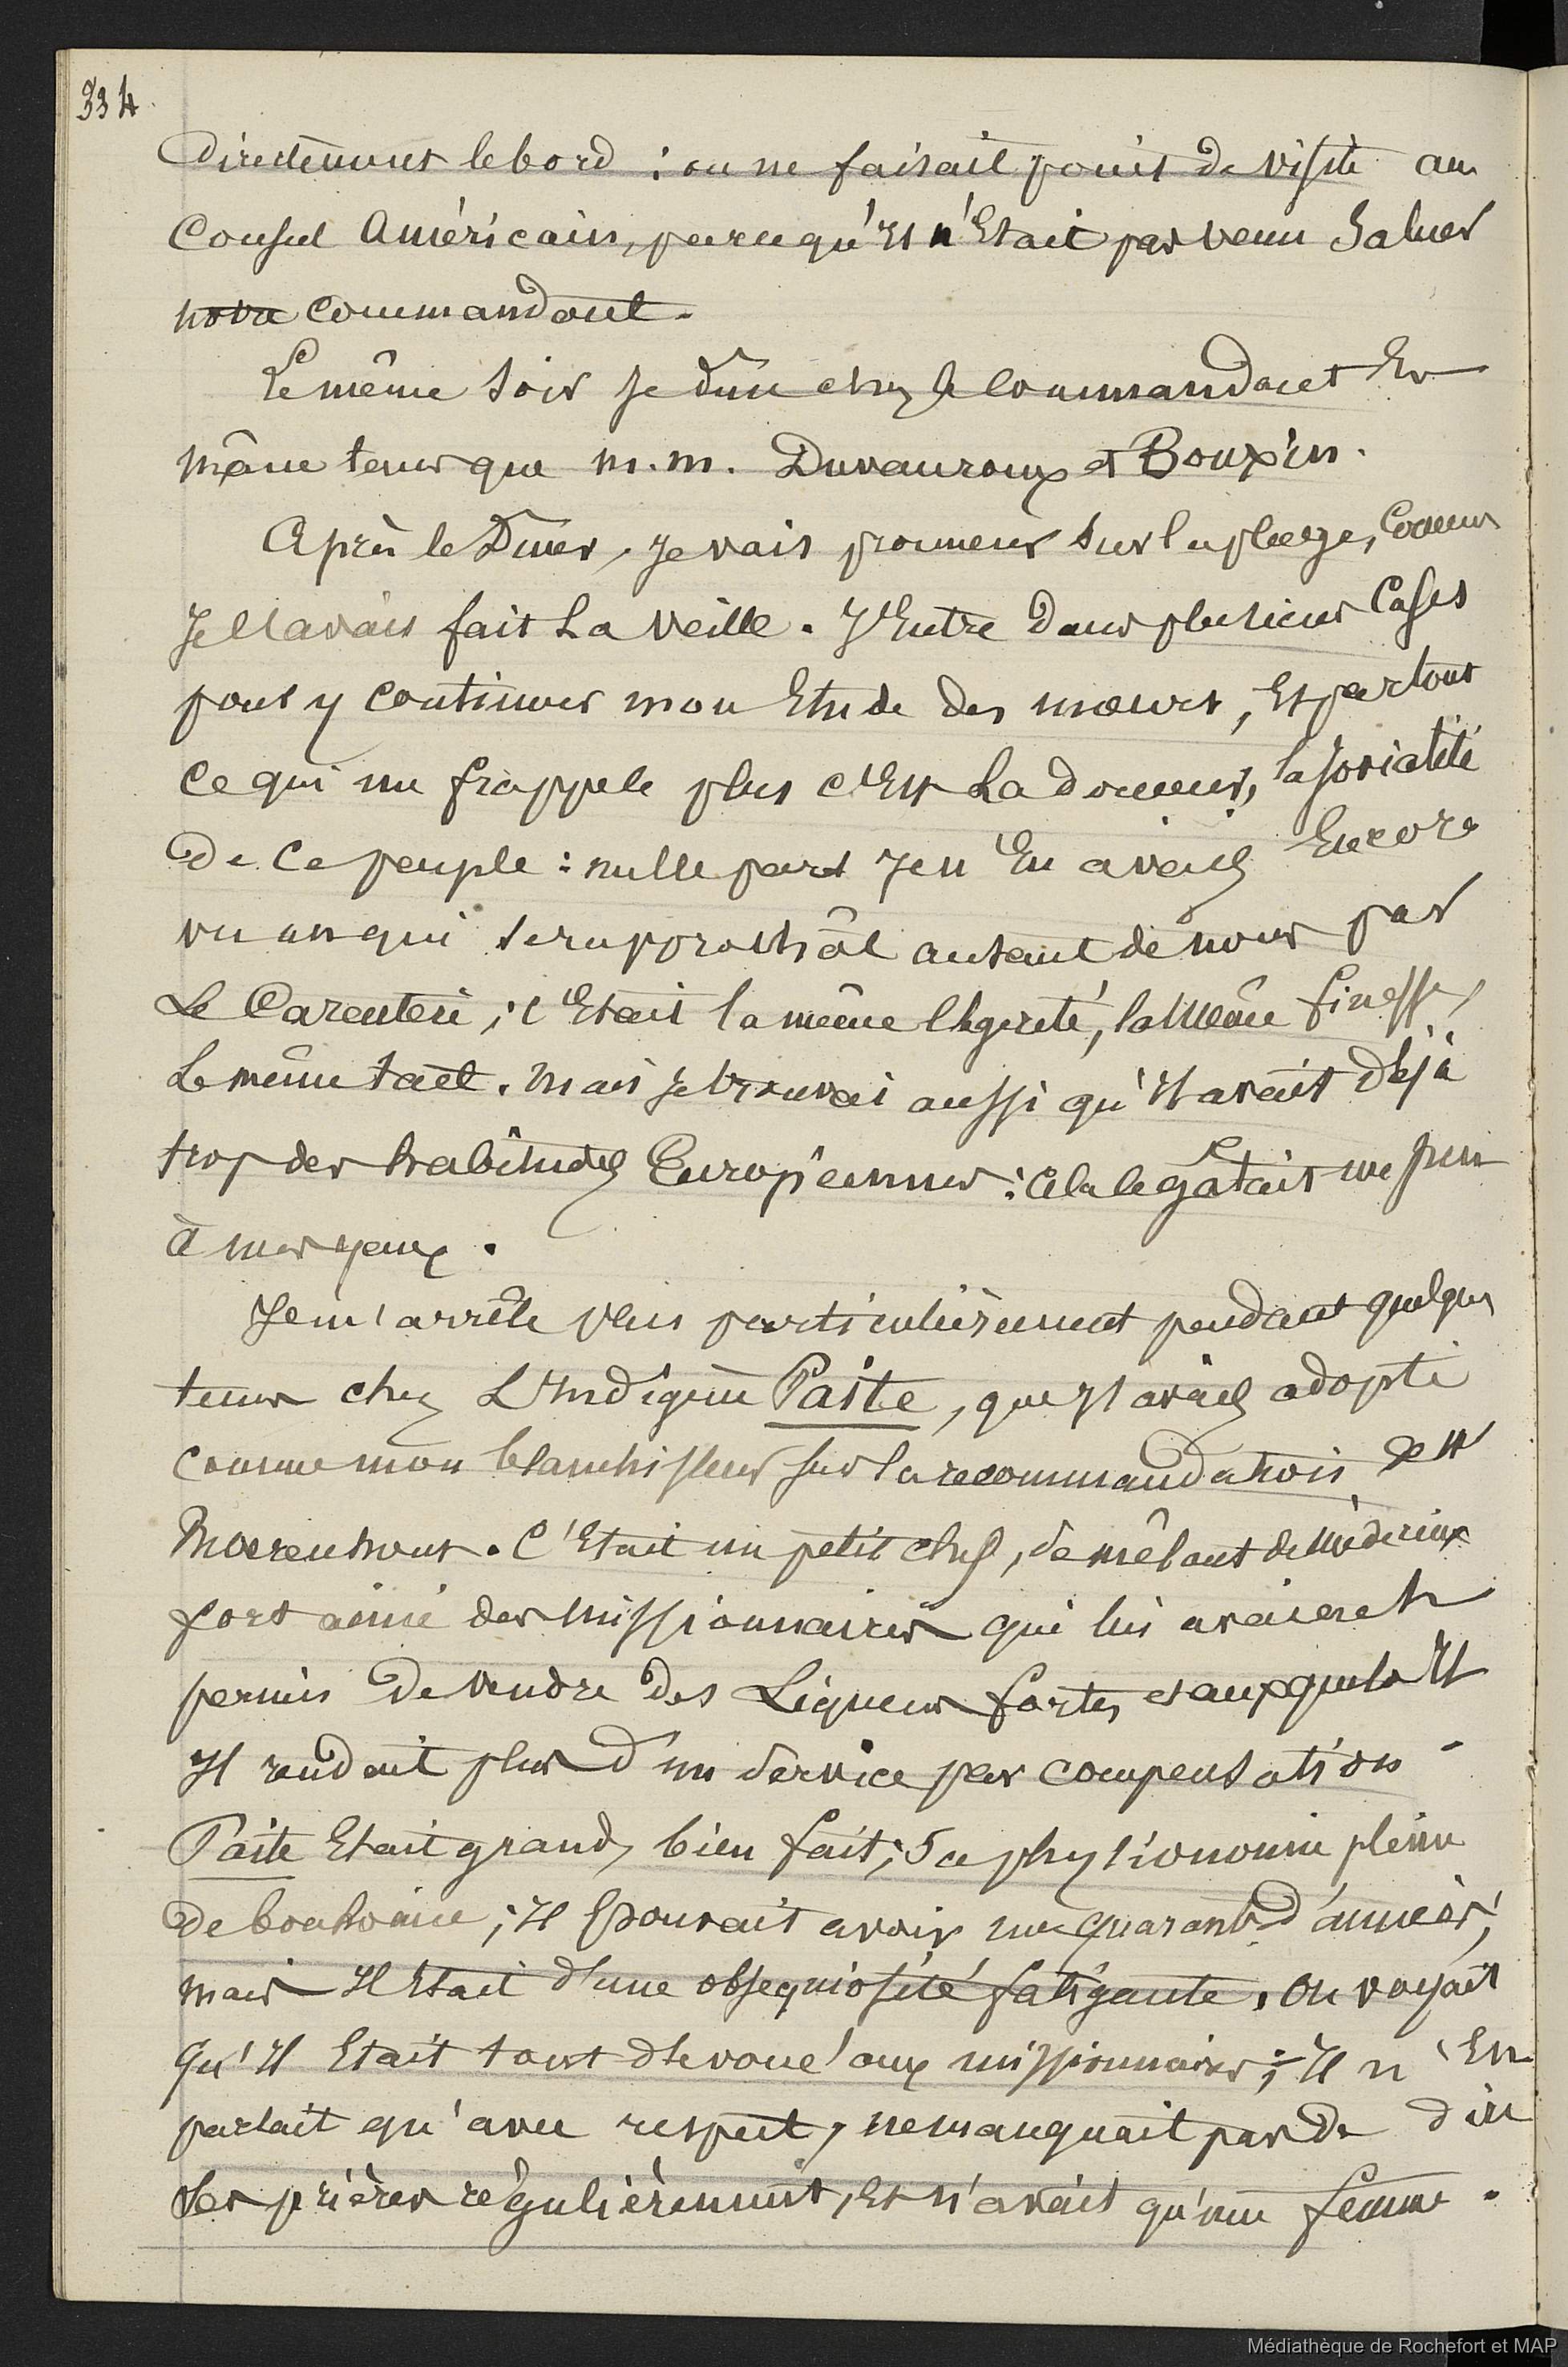 334.
Directement le bord : on ne faisait point de visite au
Consul Américain, parcequ'il n'Etait pas venu Saluer
notre Commandant.
Le même soir je dîne chez le Commandant En
même tems que m.m. Duvauroux et Bouxin.
Après le Dîner, je vais promener sur la plage, Comme
Je l'avais fait La veille. J'Entre dans plusieurs Cases
pour y continuer mon Etude des mœurs, Et partout
ce qui me frappe le plus c'Est La douceur, la jovialité
de ce peuple : nulle part Je n'En avais Encore
vu un qui se rapprochât autant de nous par
Le Caractère ; c'Etait la même légèreté, la même finesse,
Le même tact. Mais je trouvai aussi qu'Il avait déjà
trop des habitudes Européennes : cela le gâtait un peu
à mes yeux.
Je m'arrête plus particulièrement pendant quelque
tems chez L'Indigène Païte, que J'avais adopté
comme mon blanchisseur sur la recommandation de Mr
Moerenhout. C'Etait un petit chef, se mêlant de Médecine
fort aimé des missionnaires qui lui avaient
permis de vendre des Liqueurs fortes et auxquels Il
Il rendait plus d'un service par compensation -
Païte Etait grand, bien fait ; Sa physionomie pleine
de bonhomie ; Il pouvait avoir une quarantne d'années ;
mais Il Etait d'une obséquiosité fatigante. On voyait
qu'Il Etait tout dévoué aux missionnaires ; Il n'En
parlait qu'avec respect, ne manquait pas de dire
Ses prières régulièrement, Et n'avait qu'une femme.
Médiathèque de Rochefort et MAP